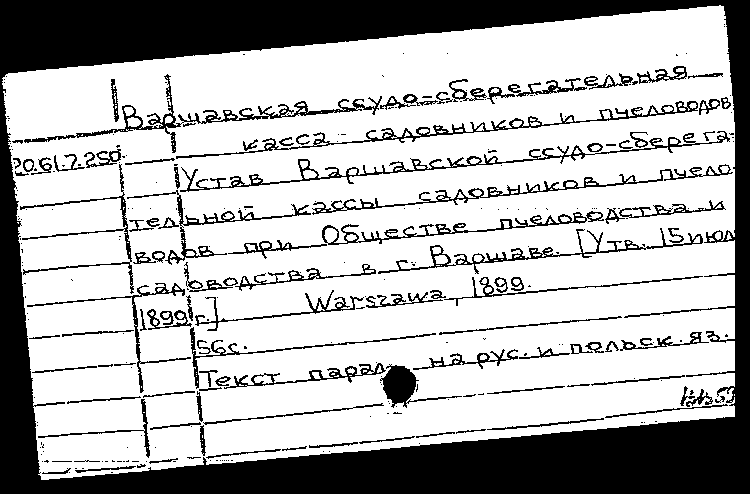 Варшавская ссудо-сберегательная
касса садовников и пчеловодов
20.61.7.250.
Устав Варшавской ссудо-сберега-
тельной кассы садовников и пчело-
водов при Обществе пчеловодства и
садоводства в г. Варшаве. [Утв. 15 июл
1899 г.]. Warszawa, 1899.
56с.
Текст парал. на рус. и польск. яз.